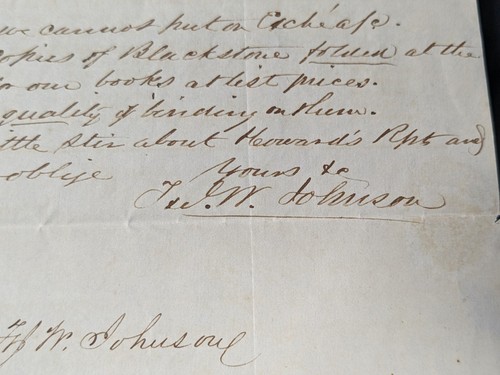 we cannot put on Exch a/c.
copies of Blackstone folded at the
for our books at list prices.
quality of binding on them.
little stir about Howard's Rpts and
oblige Yours &c
T. & J. W. Johnson
W. Johnson